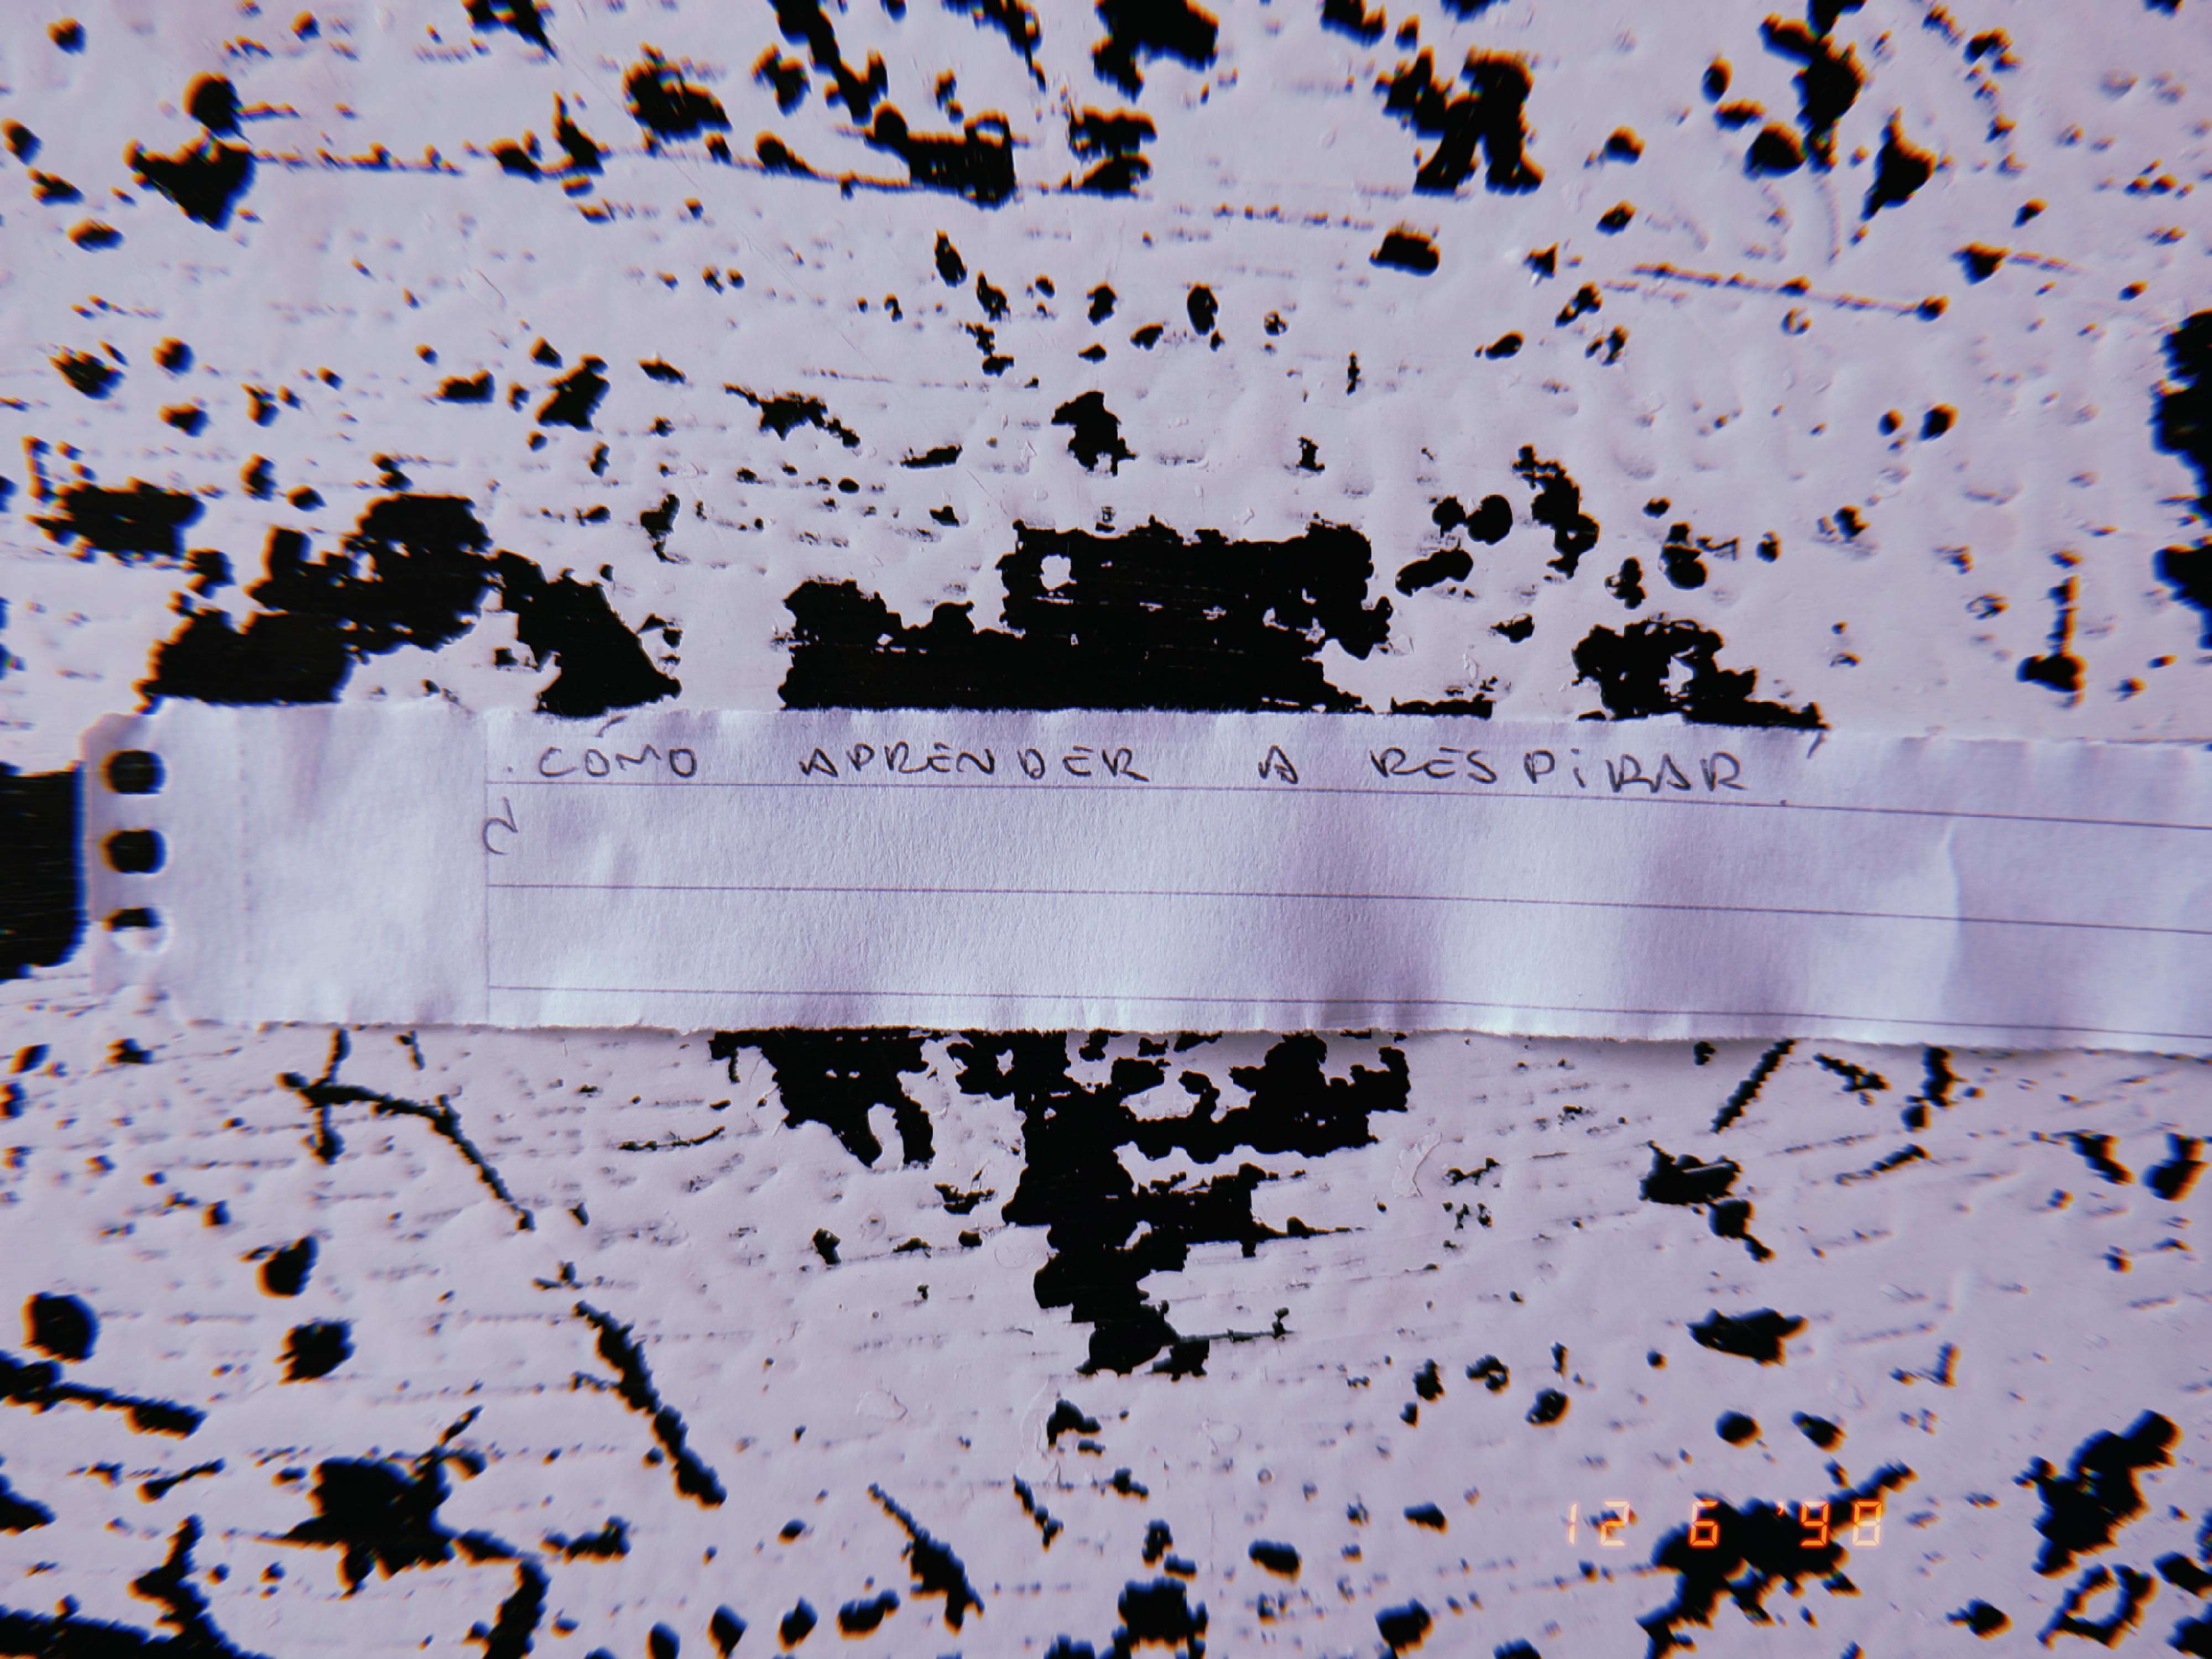 . COMO APRENDER A RESPIRAR.
12 6 '98